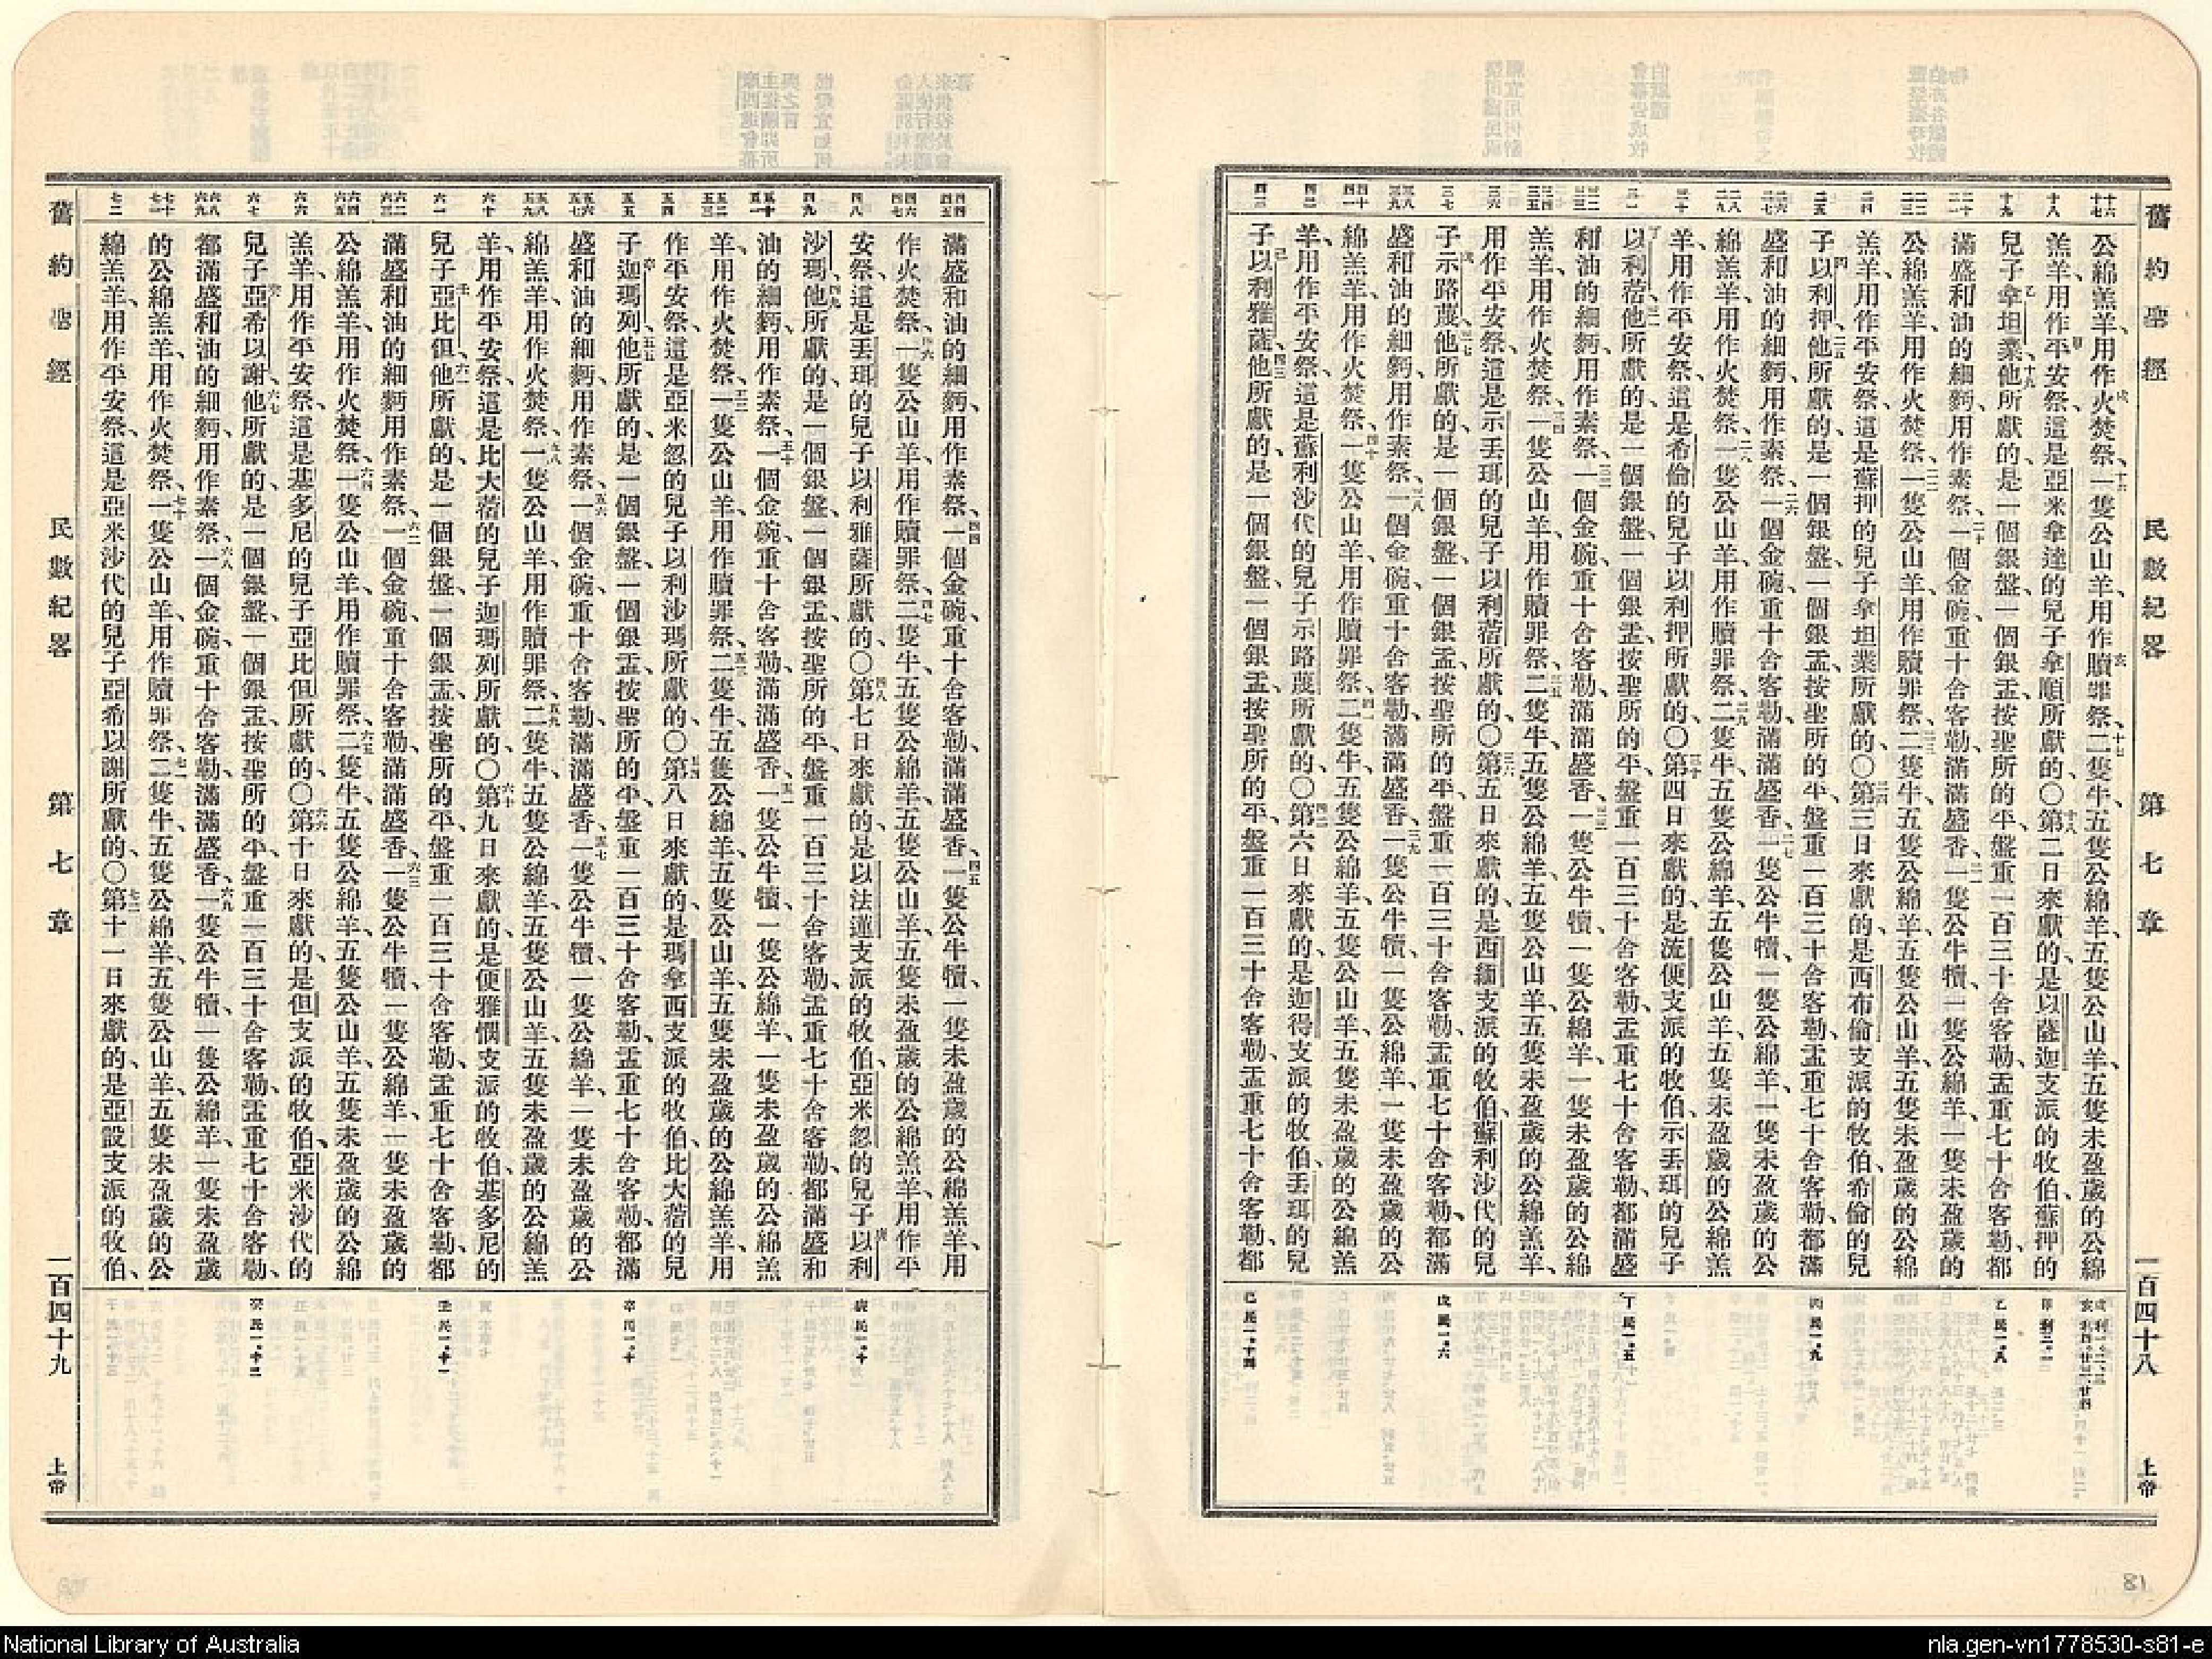 舊約聖經 民數紀畧 第七章 一百四十八 上帝
十六 十七
十八
十九
二十 二一
二二 二三
二四
二五
二六 二七
二八 二九
三十
三一
三二 三三
三四 三五
三六
三七
三八 三九
四十 四一
四二
四三
公綿羔羊、用作火焚祭、十六一隻公山羊、用作贖罪祭、十七二隻牛、五隻公綿羊、五隻公山羊、五隻未盈歲的公綿
羔羊、用作平安祭、這是亞米拿達的兒子拿順所獻的、〇十八第二日來獻的、是以薩迦支派的牧伯、蘇押的
兒子拿坦業、十九他所獻的、是一個銀盤、一個銀盂、按聖所的平、盤重一百三十舍客勒、盂重七十舍客勒、都
滿盛和油的細麪、用作素祭、二十一個金碗、重十舍客勒、滿滿盛香、二一一隻公牛犢、一隻公綿羊、一隻未盈歲的
公綿羔羊、用作火焚祭、二二一隻公山羊、用作贖罪祭、二三二隻牛、五隻公綿羊、五隻公山羊、五隻未盈歲的公綿
羔羊、用作平安祭、這是蘇押的兒子拿坦業所獻的、〇二四第三日來獻的、是西布倫支派的牧伯、希倫的兒
子以利押、二五他所獻的、是一個銀盤、一個銀盂、按聖所的平、盤重一百三十舍客勒、盂重七十舍客勒、都滿
盛和油的細麪、用作素祭、二六一個金碗、重十舍客勒、滿滿盛香、二七一隻公牛犢、一隻公綿羊、一隻未盈歲的公
綿羔羊、用作火焚祭、二八一隻公山羊、用作贖罪祭、二九二隻牛、五隻公綿羊、五隻公山羊、五隻未盈歲的公綿羔
羊、用作平安祭、這是希倫的兒子以利押所獻的、〇三十第四日來獻的、是流便支派的牧伯、示丟珥的兒子
以利蓿、三一他所獻的、是一個銀盤、一個銀盂、按聖所的平、盤重一百三十舍客勒、盂重七十舍客勒、都滿盛
和油的細麪、用作素祭、三二一個金碗、重十舍客勒、滿滿盛香、三三一隻公牛犢、一隻公綿羊、一隻未盈歲的公綿
羔羊、用作火焚祭、三四一隻公山羊、用作贖罪祭、三五二隻牛、五隻公綿羊、五隻公山羊、五隻未盈歲的公綿羔羊、
用作平安祭、這是示丟珥的兒子以利蓿所獻的、〇三六第五日來獻的、是西緬支派的牧伯、蘇利沙代的兒
子示路蔑、三七他所獻的、是一個銀盤、一個銀盂、按聖所的平、盤重一百三十舍客勒、盂重七十舍客勒、都滿
盛和油的細麪、用作素祭、三八一個金碗、重十舍客勒、滿滿盛香、三九一隻公牛犢、一隻公綿羊、一隻未盈歲的公
綿羔羊、用作火焚祭、四十一隻公山羊、用作贖罪祭、四一二隻牛、五隻公綿羊、五隻公山羊、五隻未盈歲的公綿羔
羊、用作平安祭、這是蘇利沙代的兒子示路蔑所獻的、〇四二第六日來獻的、是迦得支派的牧伯、丟珥的兒
子以利雅薩、四三他所獻的、是一個銀盤、一個銀盂、按聖所的平、盤重一百三十舍客勒、盂重七十舍客勒、都
甲利三、一
乙民一、八
丙民一、九
丁民一、五
戊民一、六
己民一、十四
四四 四五
四六 四七
四八
四九
五十 五一
五二 五三
五四
五五
五六 五七
五八 五九
六十
六一
六二 六三
六四 六五
六六
六七
六八 六九
七十 七一
七二
滿盛和油的細麪、用作素祭、四四一個金碗、重十舍客勒、滿滿盛香、四五一隻公牛犢、一隻公綿羊、一隻未盈歲的公綿羔羊、用
作火焚祭、四六一隻公山羊、用作贖罪祭、四七二隻牛、五隻公綿羊、五隻公山羊、五隻未盈歲的公綿羔羊、用作平
安祭、這是丟珥的兒子以利雅薩所獻的、〇四八第七日來獻的、是以法蓮支派的牧伯、亞米忽的兒子以利
沙瑪、四九他所獻的、是一個銀盤、一個銀盂、按聖所的平、盤重一百三十舍客勒、盂重七十舍客勒、都滿盛和
油的細麪、用作素祭、五十一個金碗、重十舍客勒、滿滿盛香、五一一隻公牛犢、一隻公綿羊、一隻未盈歲的公綿羔
羊、用作火焚祭、五二一隻公山羊、用作贖罪祭、五三二隻牛、五隻公綿羊、五隻公山羊、五隻未盈歲的公綿羔羊、用
作平安祭、這是亞米忽的兒子以利沙瑪所獻的、〇五四第八日來獻的、是瑪拿西支派的牧伯、比大蓿的兒
子迦瑪列、五五他所獻的、是一個銀盤、一個銀盂、按聖所的平、盤重一百三十舍客勒、盂重七十舍客勒、都滿
盛和油的細麪、用作素祭、五六一個金碗、重十舍客勒、滿滿盛香、五七一隻公牛犢、一隻公綿羊、一隻未盈歲的公
綿羔羊、用作火焚祭、五八一隻公山羊、用作贖罪祭、五九二隻牛、五隻公綿羊、五隻公山羊、五隻未盈歲的公綿羔
羊、用作平安祭、這是比大蓿的兒子迦瑪列所獻的、〇六十第九日來獻的、是便雅憫支派的牧伯、基多尼的
兒子亞比但、六一他所獻的、是一個銀盤、一個銀盂、按聖所的平、盤重一百三十舍客勒、盂重七十舍客勒、都
滿盛和油的細麪、用作素祭、六二一個金碗、重十舍客勒、滿滿盛香、六三一隻公牛犢、一隻公綿羊、一隻未盈歲的
公綿羔羊、用作火焚祭、六四一隻公山羊、用作贖罪祭、六五二隻牛、五隻公綿羊、五隻公山羊、五隻未盈歲的公綿
羔羊、用作平安祭、這是基多尼的兒子亞比但所獻的、〇六六第十日來獻的、是但支派的牧伯、亞米沙代的
兒子亞希以謝、六七他所獻的、是一個銀盤、一個銀盂、按聖所的平、盤重一百三十舍客勒、盂重七十舍客勒、
都滿盛和油的細麪、用作素祭、六八一個金碗、重十舍客勒、滿滿盛香、六九一隻公牛犢、一隻公綿羊、一隻未盈歲
的公綿羔羊、用作火焚祭、七十一隻公山羊、用作贖罪祭、七一二隻牛、五隻公綿羊、五隻公山羊、五隻未盈歲的公
綿羔羊、用作平安祭、這是亞米沙代的兒子亞希以謝所獻的、〇七二第十一日來獻的、是亞設支派的牧伯、
庚民一、十
辛民一、十
壬民一、十一
癸民一、十二
舊約聖經 民數紀畧 第七章 一百四十九 上帝
81
National Library of Australia
nla.gen-vn1778530-s81-e